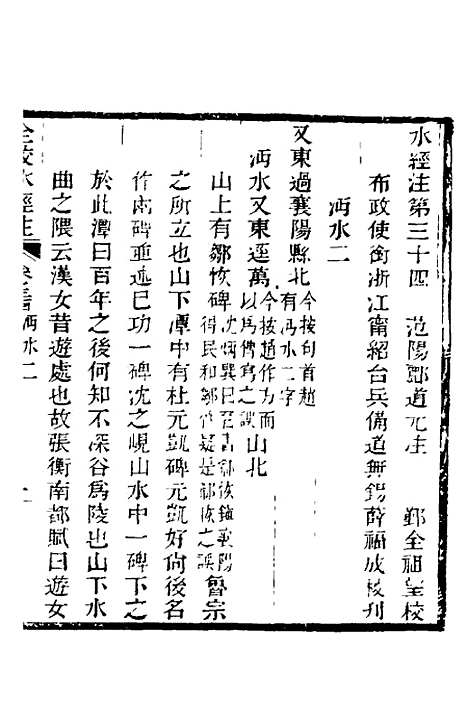 水經注第三十四　范陽酈道元注　鄞全祖望校
布政使銜浙江甯紹台兵備道無錫薛福成校刊
沔水二
又東過襄陽縣北今按句首趙有沔水二字
沔水又東逕萬今按趙作方而以爲僞爲之誤山北
山上有鄒恢碑沈炳巽曰至書鄒恢鎮襄陽得民和鄒作疑是鄒恢之誤魯宗
之所立也山下潭中有杜元凱碑元凱好尙後名
作兩碑並述已功一碑沈之峴山水中一碑下之
於此潭曰百年之後何知不深谷爲陵也山下水
曲之隈云漢女昔遊處也故張衡南都賦曰遊女
全校水經注　卷三十四沔水二　一